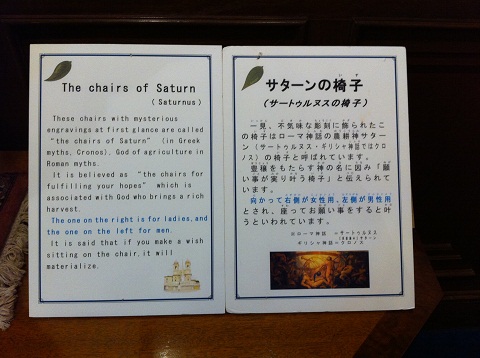 The chairs of Saturn
(Saturnus)
These chairs with mysterious
engravings at first glance are called
“the chairs of Saturn” (in Greek
myths, Cronos). God of agriculture in
Roman myths.
It is believed as “the chairs for
fulfilling your hopes” which is
associated with God who brings a rich
harvest.
The one on the right for ladies, and
the one on the left for men.
It is said that if you make a wish
sitting on the chair, it will
materialize.
サターンの椅子
(サートゥルヌスの椅子)
一見、不気味な彫刻に飾られたこ
の椅子はローマ神話の農耕神サター
ン(サートゥルヌス・ギリシャ神話ではクロ
ノス)の椅子と呼ばれています。
豊穣をもたらす神の名に因み「願
い事が実り叶う椅子」と伝えられて
います。
向かって右側が女性用、左側が男性用
とされ、座ってお願い事をすると叶
うといわれています。
※ローマ神話 =サートゥルヌス
サターン
ギリシャ神話=クロノス